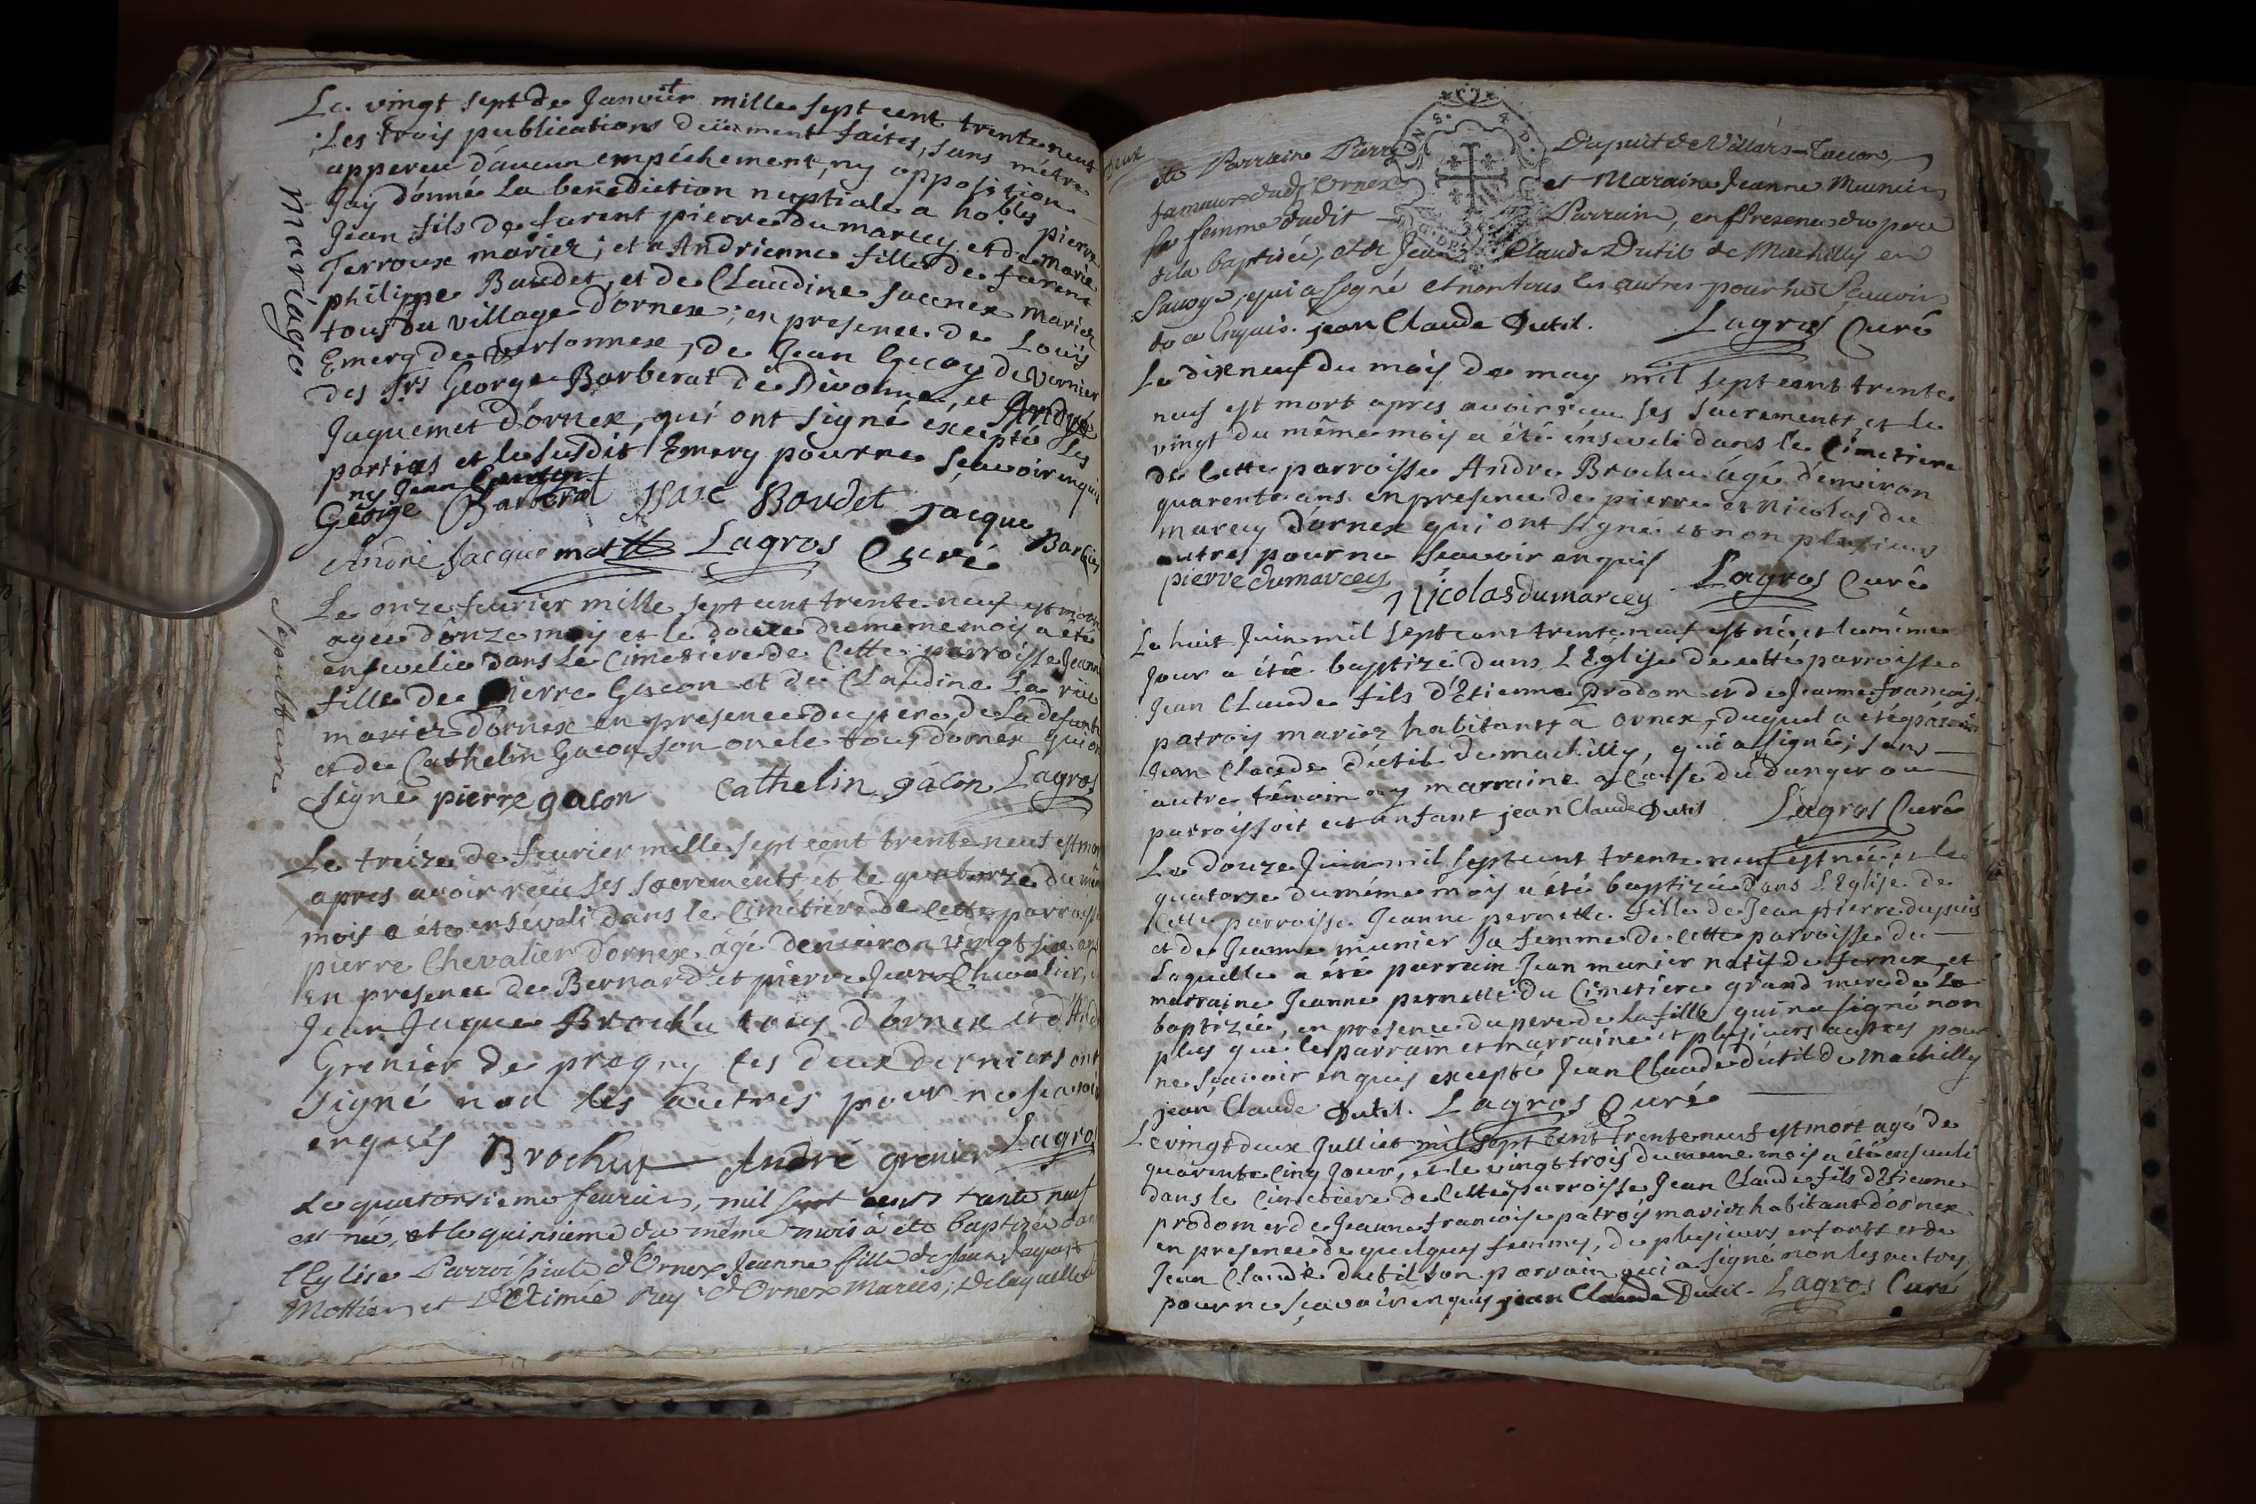 Le vingt sept de Janvier mille sept cent trente neuf
Les trois publications deüement faites, sans m'être
apperceu d'aucun empéchement, ny opposition
Jay donné La benediction nuptiale a nobles pierre
Jean fils de furent pierre du marcey et de marie
Terroux mariez; et a Andrienne fille de furent
philippe Baudet, et de Claudine saunex mariez
tous du village d'ornex; en presence de Louis
Emery de versonnex, de Jean de Vernier
des Srs George Barberat de Divonne et André
Jaquemet d'ornex, qui ont signé éxcepté Les
parties et le susdit Emery pour ne scavoir enquis
mariage
ny Jean
George Barberat Isaac Boudet jacque Barbier
André Jacquemet Lagros Curé
Sepulture
Le onze fevrier mille sept cent trente neuf est morte
agée d'onze mois et le douze du meme mois a été
ensevelie dans Le Cimetiere de Cette parroisse Jeanne
fille de Pierre Gacon et de Claudine La rüe
mariez d'ornex en presence du pere de La defunte
et de Cathelin Gacon son oncle tous d'ornex qui ont
signé pierre gacon Cathelin gacon Lagros
Le treize de fevrier mille sept cent trente neuf est mort
apres avoir reçu ses sacrements et le quatorze du même
mois a été enseveli dans le Cimetiere de cette parroisse
pierre Chevalier d'ornex, âgé d'environ vingt six ans
en presence de Bernard et pierre Jean Chevalier,
Jean Jaque Brochu tous d'ornex et d'André
Grenier de pregny les deux derniers ont
signé non les autres pour ne scavoir
enquis Brochu André grenier Lagros
Le quatorsieme fevrier, mil sept cent trente neuf
est née, et le quinsieme du même mois à été baptizée dans
l'Eglise Parroissiale d'Ornex Jeanne fille de Jean Jaques
Mottier, et D'Etimée Ruy d'Ornex Mariés; de laquelle a
été Parrain Pierre Dupuit de Villars-Tacon,
et Maraine Jeanne Munier
sa femme dudit Parrain, en Presence du pere
de la baptisée, et de Jean Claude Dutil de Machilly en
Savoye, qui a signé et non tous les autres pour ne Scavoir
de ce Enquis. jean Claude Dutil. Lagros Curé
Le dixneuf du mois de may mil sept cent trente
neuf est mort apres avoir reçu ses sacrements, et le
vingt du même mois a été énseveli dans le Cimetiere
de Cette parroisse André Brochu âgé d'environ
quarente ans en presence de pierre et Nicolas du
marcey d'ornex qui ont signé et non plusieurs
autres pour ne scavoir enquis
pierre dumarcey Nicolas dumarcey Lagros Curé
Le huit Juin mil sept cent trente neuf est né, et le même
Jour a été baptizé dans L'Eglise de cette parroisse
Jean Claude fils d'Etienne Prodom et de Jeanne françoise
patrois mariez habitants a Ornex, duquel a été parrain
Jean Claude dutil de machilly, qui a signé; sans
autre témoin ny marraine a Cause du danger ou
parroissoit cet enfant jean Claude Dutil Lagros Curé
Le douze Juin mil sept cent trente neuf est née et le
quatorze du même mois a été baptizée dans L'Eglise de
Cette parroisse Jeanne pernette fille de Jean pierre dupuis
et de Jeanne munier sa femme de cette parroisse de
Laquelle a été parrain Jean munier natif de fernex, et
marraine Jeanne pernette du Cimetiere grand mere de la
baptizée, en presence du pere de la fille qui na signé non
plus que le parrain et marraine et plusieurs autres pour
ne scavoir enquis excepté Jean Claude dutil de machilly
jean Claude Dutil. Lagros Curé
Le vingt deux Julliet mil sept cent trente neuf est mort agé de
quarente Cinq Jour, et le vingt trois du meme mois a été enseveli
dans le Cimetiere de Cette parroisse Jean Claude fils d'Etienne
prodom et de Jeanne francoise patrois mariez habitant d'ornex
en presence de quelques femmes, de plusieurs enfants et de
Jean Claude dutil son parrain qui a signé non les autres
pour ne scavoir enquis jean Claude Dutil. Lagros Curé